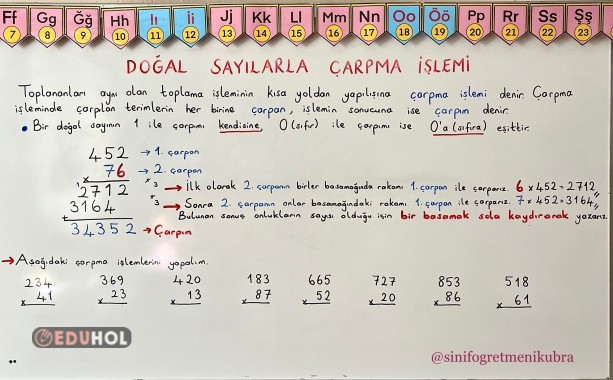 Ff Gg Ğğ Hh Iı İi Jj Kk Ll Mm Nn Oo Öö Pp Rr Ss Şş
7 8 9 10 11 12 13 14 15 16 17 18 19 20 21 22 23
DOĞAL SAYILARLA ÇARPMA İŞLEMİ
Toplananları aynı olan toplama işleminin kısa yoldan yapılışına çarpma işlemi denir. Çarpma
işleminde çarpılan terimlerin her birine çarpan, işlemin sonucuna ise çarpım denir.
• Bir doğal sayının 1 ile çarpımı kendisine, 0 (sıfır) ile çarpımı ise 0'a (sıfıra) eşittir.
452 → 1. çarpan
x 76 → 2. çarpan
2712 → İlk olarak 2. çarpanın birler basamağında rakamı 1. çarpan ile çarparız. 6 x 452 = 2712
3164 → Sonra 2. çarpanın onlar basamağındaki rakamı 1. çarpan ile çarparız. 7 x 452 = 3164
+ Bulunan sonuç onlukların sayısı olduğu için bir basamak sola kaydırarak yazarız.
34352 → Çarpım
→ Aşağıdaki çarpma işlemlerini yapalım.
234 369 420 183 665 727 853 518
x 41 x 23 x 13 x 87 x 52 x 20 x 86 x 61
EDUHOL
@sinifogretmenikubra